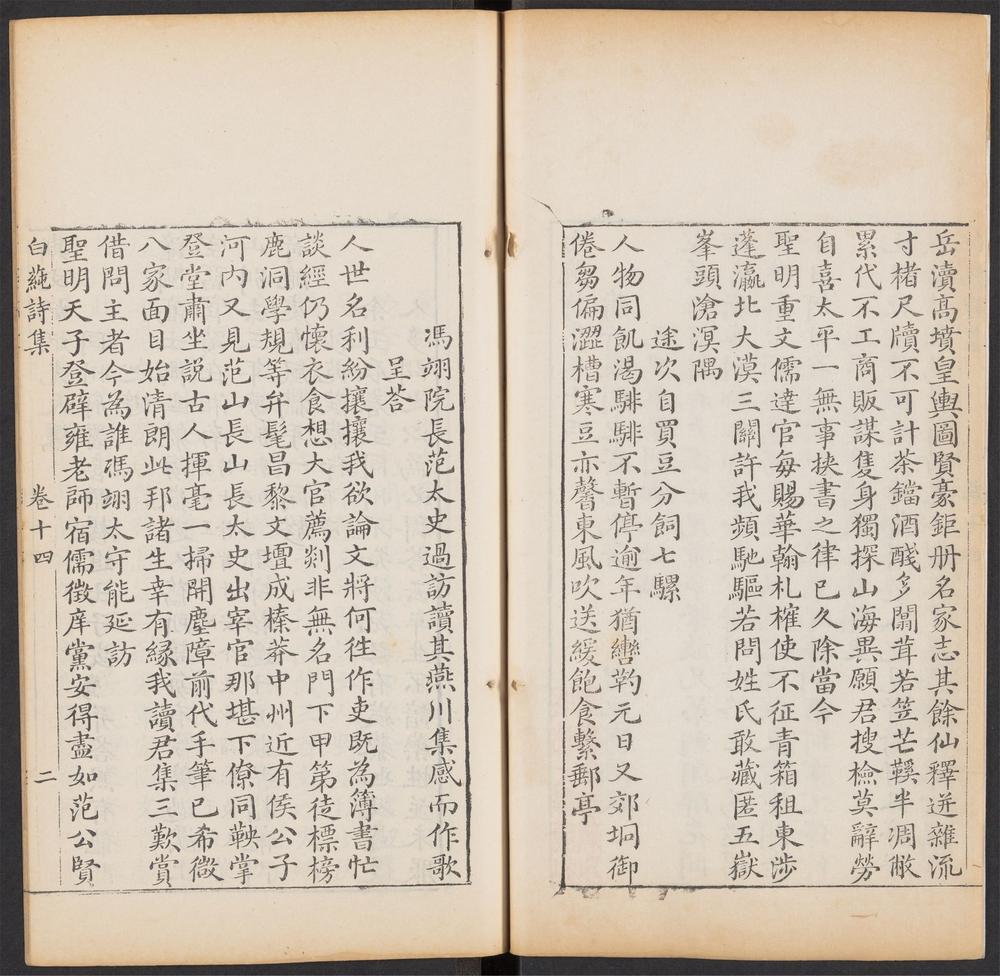 岳瀆高墳皇輿圖賢豪鉅册名家志其餘仙釋迸雜流
寸楮尺牘不可計茶鐺酒醆多闒茸若笠芒鞵半凋敝
累代不工商販謀隻身獨探山海異願君搜檢莫辭勞
自喜太平一無事挾書之律已久除當今
聖明重文儒達官每賜華翰札榷使不征青箱租東涉
蓬瀛北大漠三關許我頻馳驅若問姓氏敢藏匿五嶽
峯頭滄溟隅
途次自買豆分飼七騾
人物同飢渴騑騑不暫停逾年猶轡靮元日又郊坰御
倦芻偏澀槽寒豆亦馨東風吹送緩飽食繫郵亭
馮翊院長范太史過訪讀其燕川集感而作歌
呈荅
人世名利紛攘攘我欲論文將何徃作吏既為簿書忙
談經仍懷衣食想大官薦剡非無名門下甲第徒標榜
鹿洞學規等弁髦昌黎文壇成榛莽中州近有侯公子
河内又見范山長山長太史出宰官那堪下僚同鞅掌
登堂肅坐説古人揮毫一掃開塵障前代手筆已希微
八家面目始清朗此邦諸生幸有緣我讀君集三歎賞
借問主者今為誰馮翊太守能延訪
聖明天子登辟雍老師宿儒徵庠黨安得盡如范公賢
白蒓詩集
卷十四
二